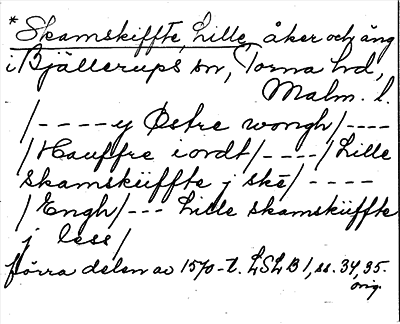 * Skamskiffte, Lille, åker och äng
i Bjällerups sn, Torna hd,
Malm. l.
/----y Östre wongh/----
/Hauffre iordt/----/Lille
skamskiiffte j skē/----
/Engh/--- Lille skamskiiffte
j less/
förra delen av 1570-t. LSLB 1, ss. 34, 35.
orig.